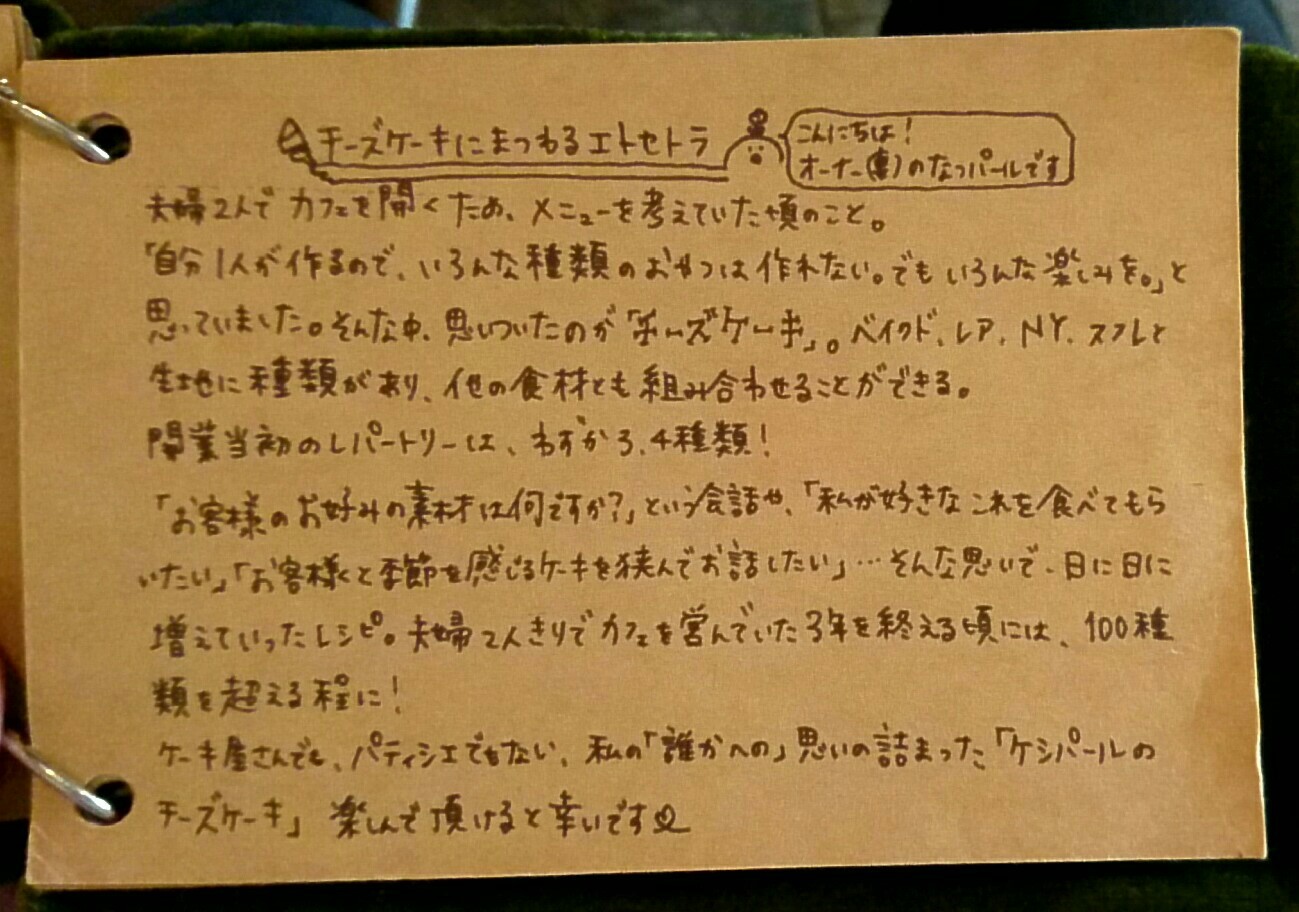 チーズケーキにまつわるエトセトラ
こんにちは!
オーナー(妻)のなつパールです
夫婦2人でカフェを開くため、メニューを考えていた頃のこと。
「自分1人が作るので、いろんな種類のおやつは作れない。でもいろんな楽しみを。」と
思っていました。そんな中、思いついたのが「チーズケーキ」。ベイクド、レア、NY、スフレと
生地に種類があり、他の食材とも組み合わせることができる。
開業当初のレパートリーは、わずか3、4種類!
「お客様のお好みの素材は何ですか?」という会話や、「私が好きなこれを食べてもら
いたい」「お客様と季節を感じるケーキを挟んでお話したい」…そんな思いで、日に日に
増えていったレシピ。夫婦2人きりでカフェを営んでいた3年を終える頃には、100種
類を超える程に!
ケーキ屋さんでも、パティシエでもない、私の「誰かへの」思いの詰まった「ケシパールの
チーズケーキ」楽しんで頂けると幸いです